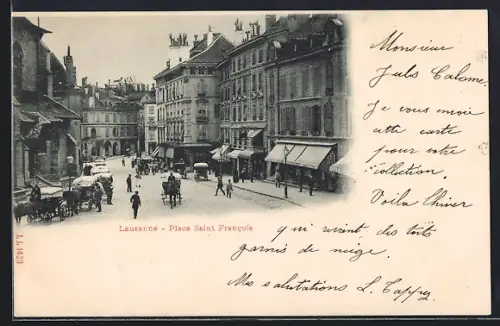 Monsieur
Jules Calame.
Je vous envoie
cette carte
pour votre
collection.
Voilà l'hiver
qui vient des toits
garnis de neige.
Mes salutations L. Cappez
Lausanne - Place Saint François
J.J. 1423